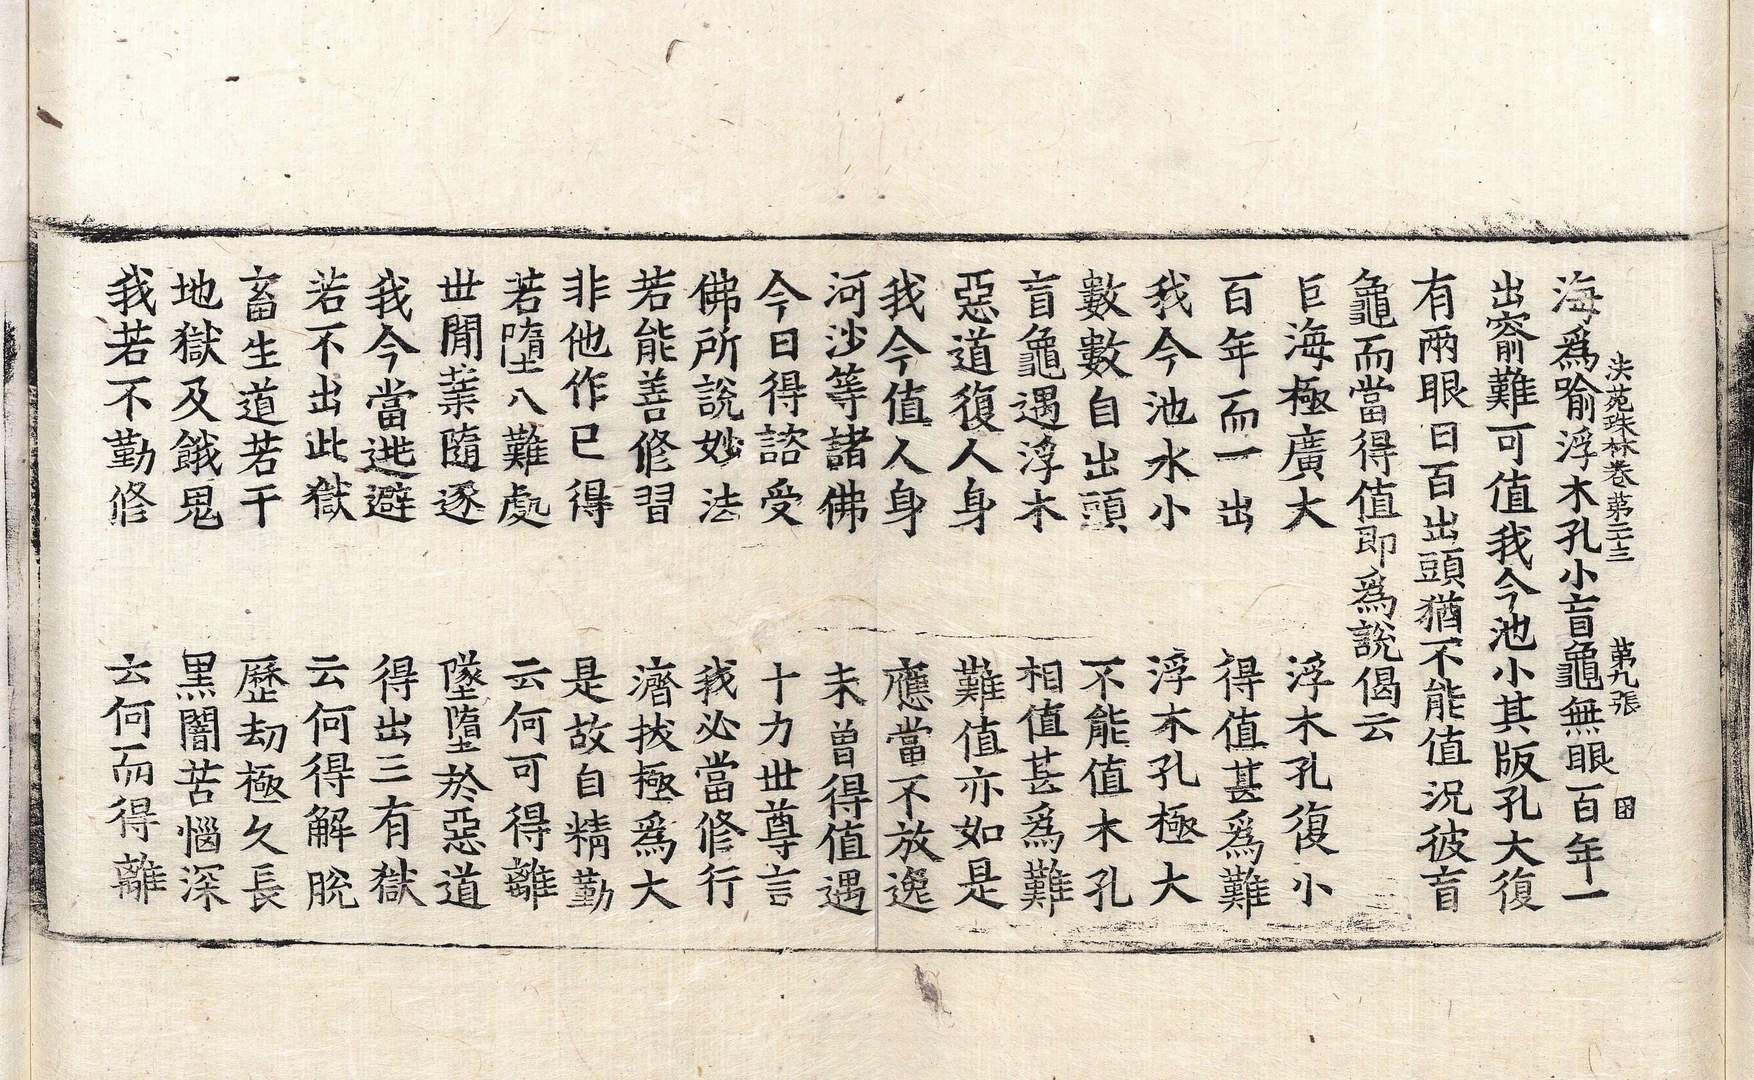 法苑珠林卷第二十三 第九張 困
海爲喻浮木孔小盲龜無眼百年一
出窬難可值我今池小其版孔大復
有兩眼日百出頭猶不能值況彼盲
龜而當得值即爲說偈云
巨海極廣大 浮木孔復小
百年而一出 得值甚爲難
我今池水小 浮木孔極大
數數自出頭 不能值木孔
盲龜遇浮木 相值甚爲難
惡道復人身 難值亦如是
我今值人身 應當不放逸
河沙等諸佛 未曾得值遇
今日得諮受 十力世尊言
佛所說妙法 我必當修行
若能善修習 濟拔極爲大
非他作已得 是故自精勤
若墮八難處 云何可得離
世閒業隨逐 墜墮於惡道
我今當逃避 得出三有獄
若不出此獄 云何得解脫
畜生道若干 歷劫極久長
地獄及餓鬼 黑闇苦惱深
我若不勤修 云何而得離